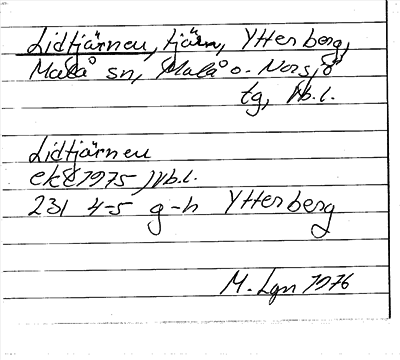 Lidtjärnen, tjärn, Ytterberg,
Malå sn, Malå o. Norsjö
tg, Vb.l.
Lidtjärnen
ek 1975, Vb.l.
231 4-5 g-h Ytterberg
M. Lgn 1976